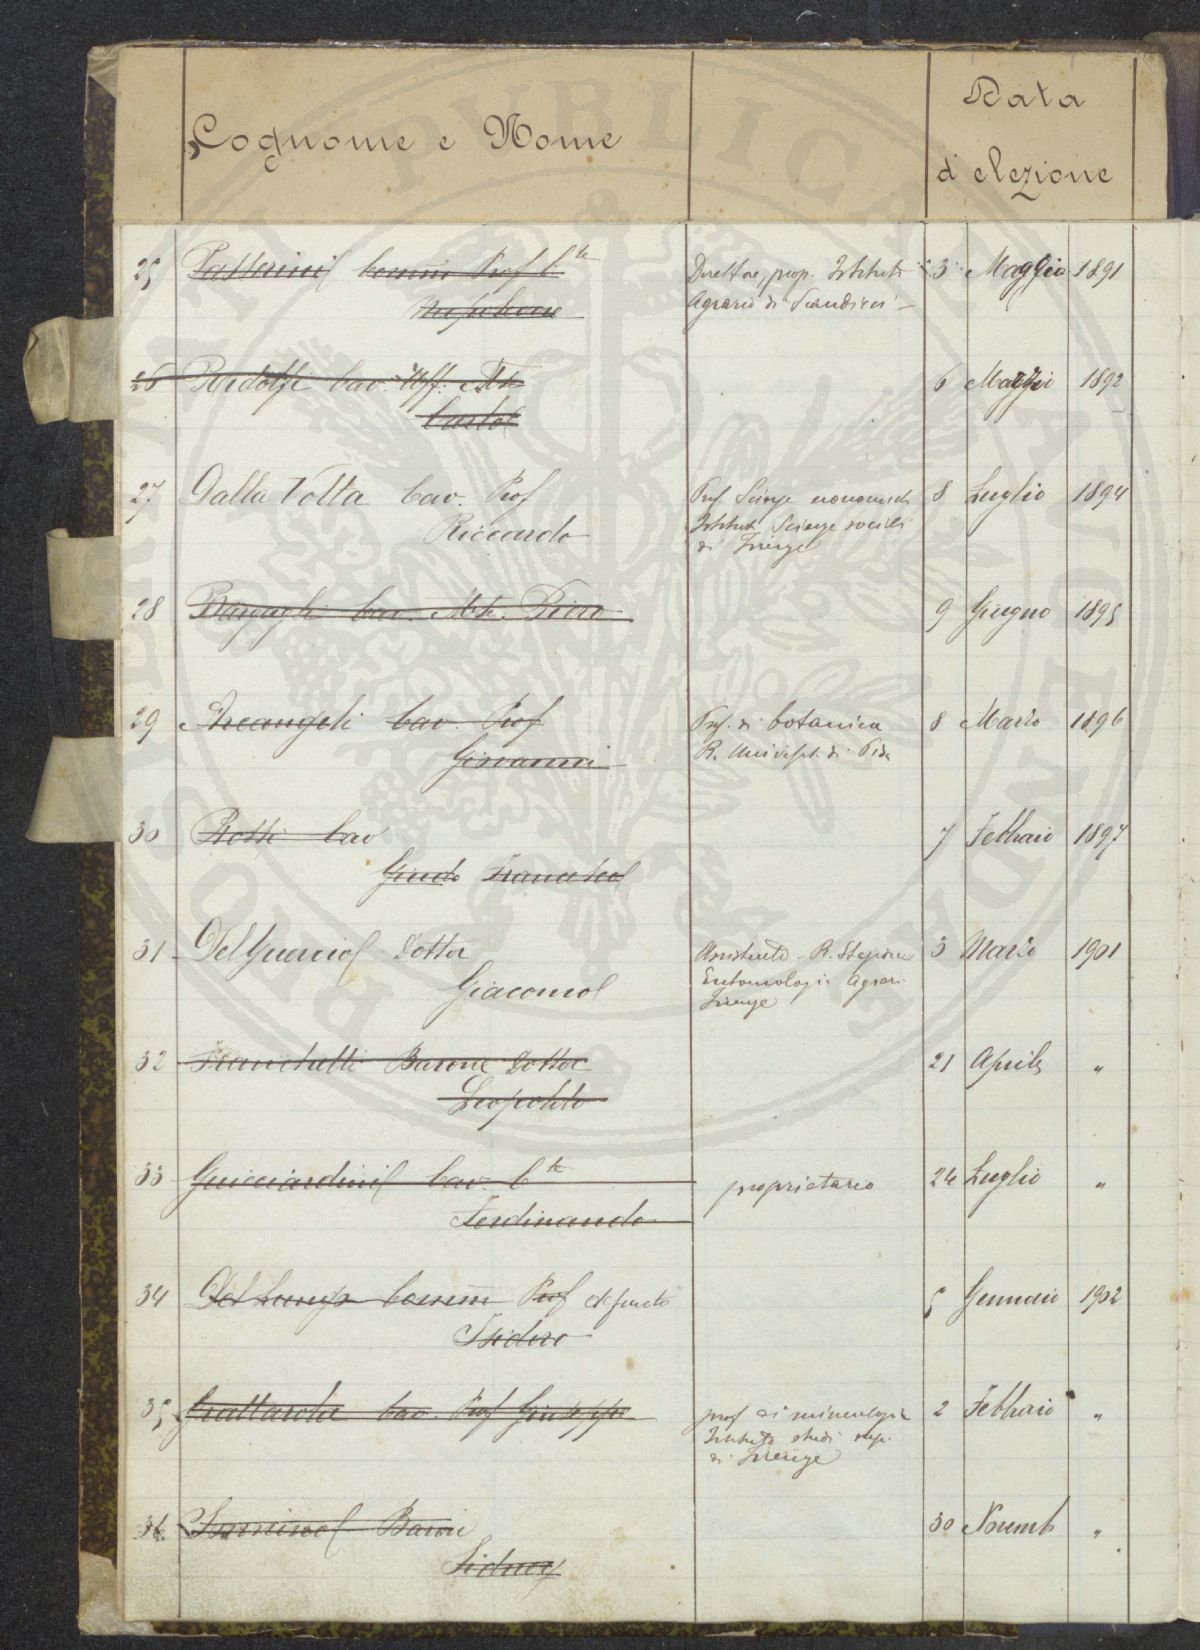 Cognome e Nome
Data
d'elezione
25 Passerini Comm Prof Cte Direttore, prop. Istituto 3 Maggio 1891
Napoleone Agrario di Scandicci
26 Ridolfi Cav. Uff. Mse 6 Marzo 1892
Carlo
27 Dalla Volta Cav. Prof Prof. Scienze economiche 8 Luglio 1894
Riccardo Istituto Scienze sociali
di Firenze
28 Bargagli Cav. Mse. Piero 9 Giugno 1895
29 Arcangeli Cav. Prof Prof. di botanica 8 Marzo 1896
Giovanni R. Universit. di Pisa
30 Cav 7 Febbraio 1897
Guido Francesco
31 Del Guercio Dottor Assistente R. Stazione 3 Marzo 1901
Giacomo Entomologia Agrar.
Firenze
32 Franchetti Barone Dottor 21 Aprile "
Leopoldo
33 Guicciardini Cav. Cte proprietario 24 Luglio "
Ferdinando
34 Del Lungo Comm Prof defunto 5 Gennaio 1902
Isidoro
35 Grattarola Cav. Prof Giuseppe prof di mineralogia 2 Febbraio "
Istituto studi sup.
di Firenze
36 Sonnino Barone 30 Novemb "
Sidney